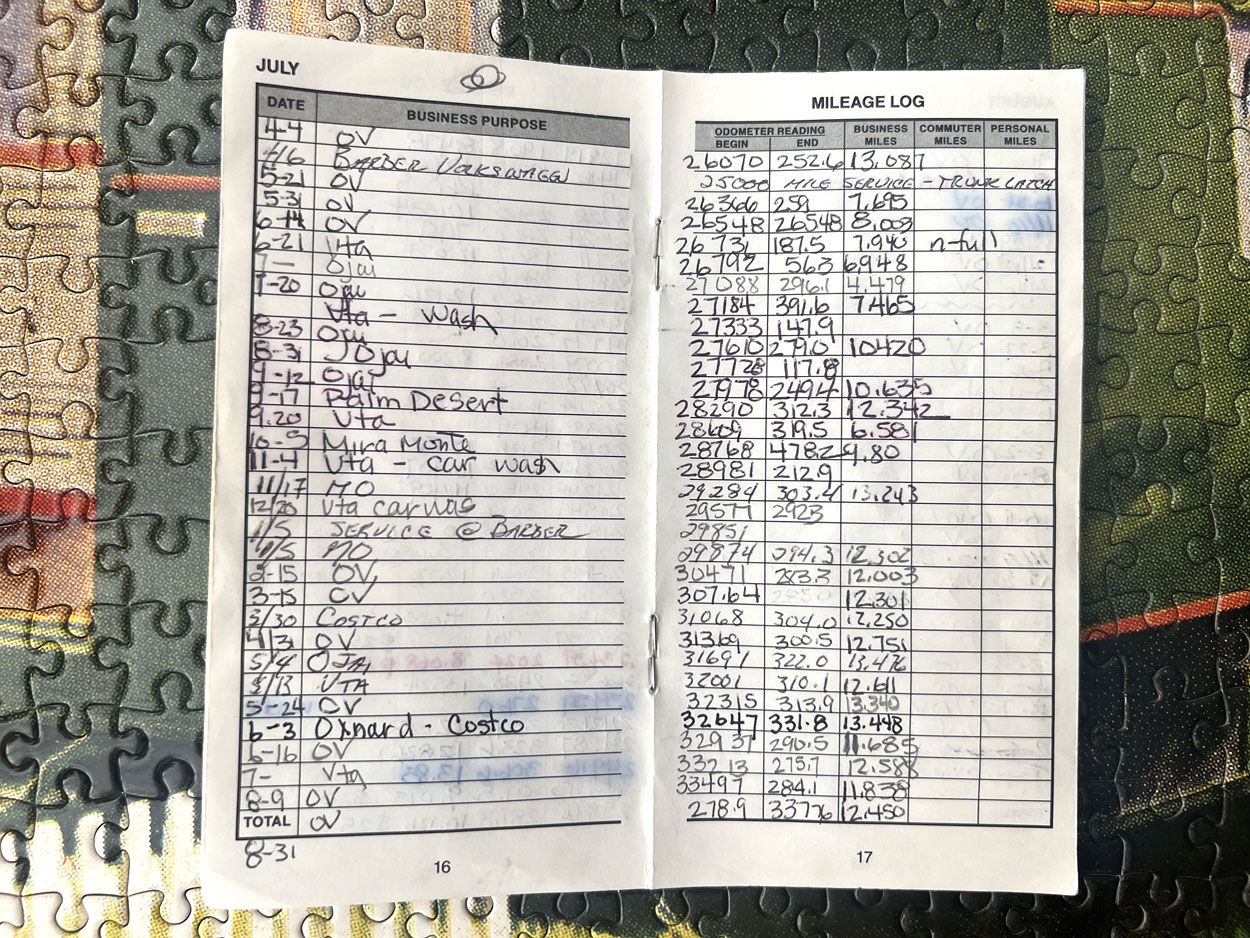 JULY
DATE BUSINESS PURPOSE
4-4 OV
4/6 BARBER VOLKSWAGEN
5-21 OV
5-31 OV
6-14 OV
6-21 Vta
7— Ojai
7-20 Ojai
Vta - wash
8-23 Ojai
8-31 Ojai
9-12 Ojai
9-17 Palm Desert
9.20 Vta
10-5 Mira Monte
11-4 Vta - car wash
11/17 MO
12/20 Vta car was
1/5 SERVICE @ BARBER
1/5 MO
2-15 OV
3-15 OV
3/30 COSTCO
4/31 OV
5/4 OJAI
5/13 VTA
5-24 OV
6-3 Oxnard - Costco
6-16 OV
7- Vta
8-9 OV
TOTAL OV
8-31
16
MILEAGE LOG
ODOMETER READING BEGIN END BUSINESS MILES COMMUTER MILES PERSONAL MILES
26070 252.6 13.087
25000 MILE SERVICE - TRUNK LATCH
26366 259 7.695
26548 26548 8.003
26731 187.5 7.940 n-full
26792 563 6.948
27088 296.1 4.479
27184 391.6 7.465
27333 147.9
27610 279.0 10420
27728 117.8
27978 249.4 10.635
28290 312.3 12.342
28609 319.5 6.581
28768 478.2 9.80
28981 212.9
29284 303.4 13.243
29577 2923
29851
29874 294.3 12.302
30471 283.3 12.003
307.64 12.301
31068 304.0 12.250
31369 300.5 12.751
31691 322.0 13.476
32001 310.1 12.611
32315 313.9 13.340
32647 331.8 13.448
32937 290.5 11.685
33213 275.7 12.588
33497 284.1 11.838
278.9 33776 12.450
17